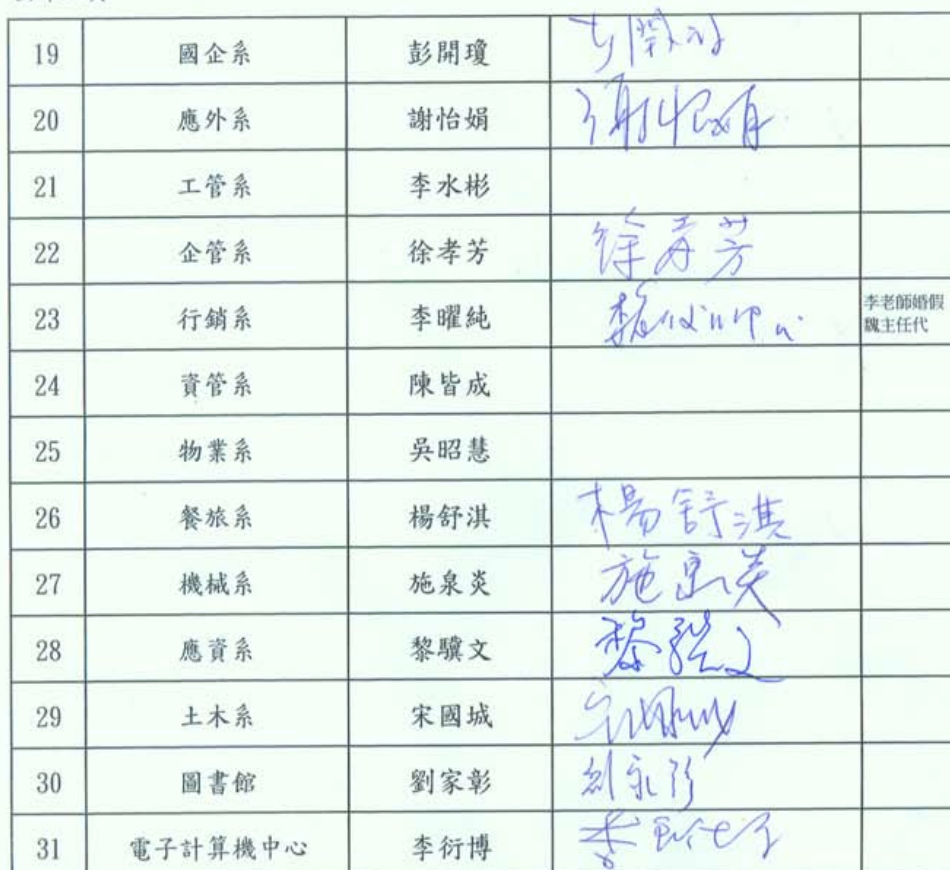 19 國企系 彭開瓊
20 應外系 謝怡娟
21 工管系 李水彬
22 企管系 徐孝芳 徐孝芳
23 行銷系 李曜純 李老師婚假
魏主任代
24 資管系 陳皆成
25 物業系 吳昭慧
26 餐旅系 楊舒淇 楊舒淇
27 機械系 施泉炎 施泉炎
28 應資系 黎驥文
29 土木系 宋國城
30 圖書館 劉家彰
31 電子計算機中心 李衍博